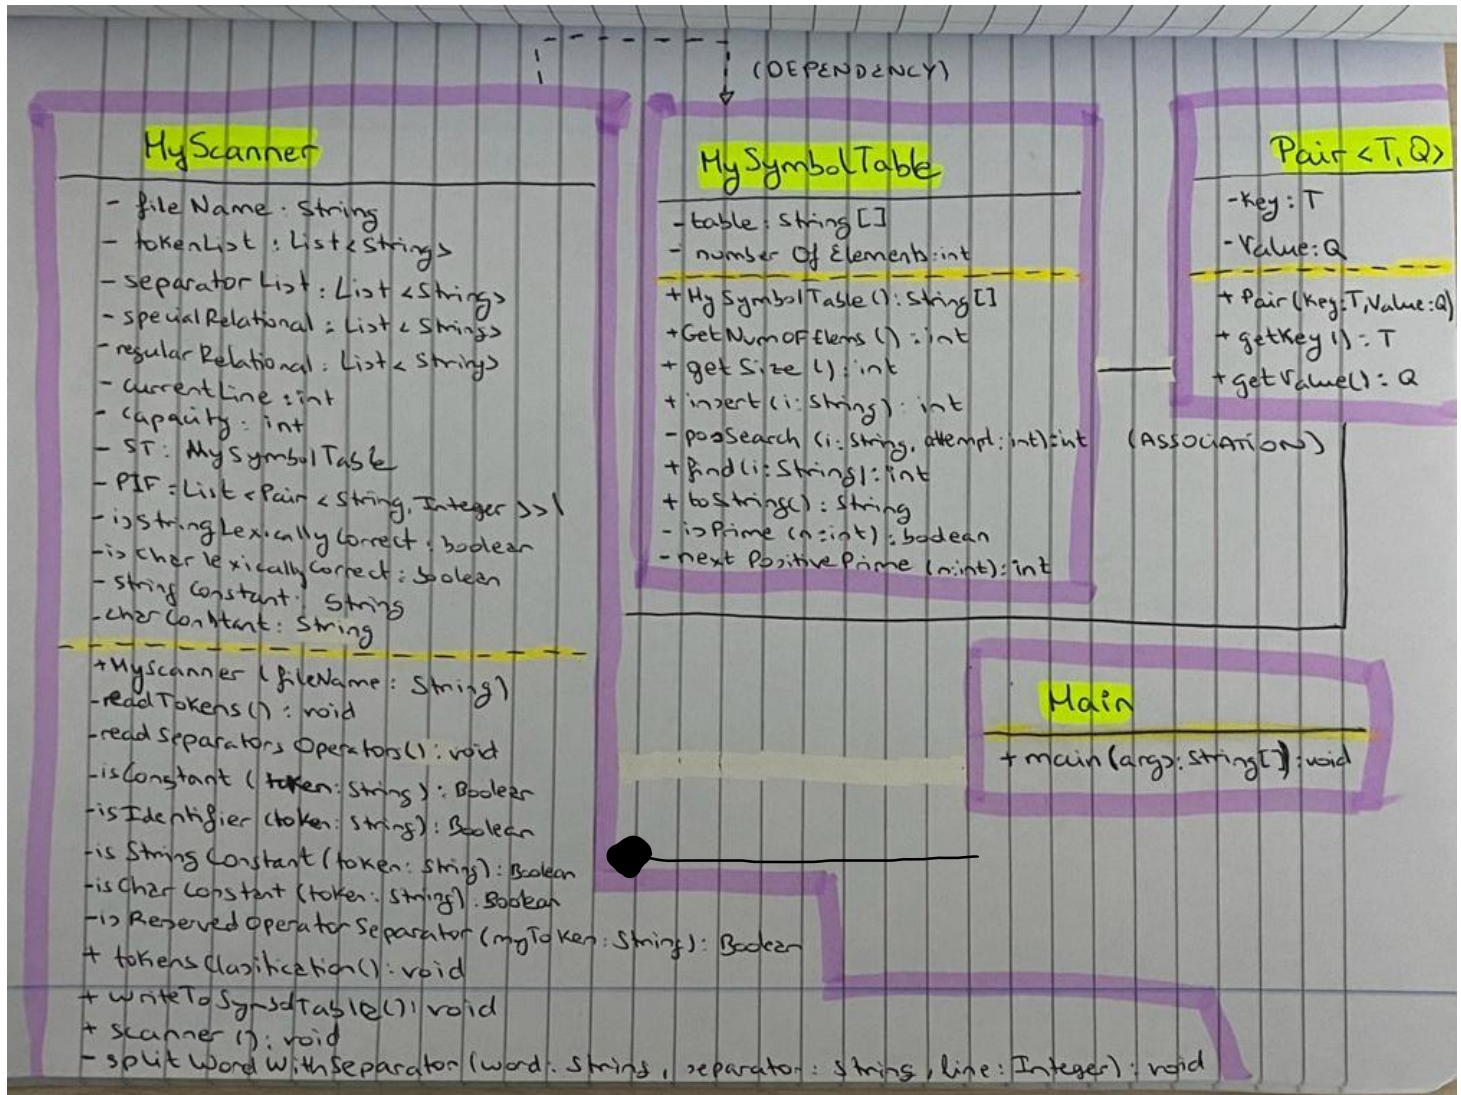 (DEPENDENCY)
MyScanner
- fileName: String
- tokenList: List<Strings>
- separatorList: List<Strings>
- specialRelational: List<Strings>
- regularRelational: List<Strings>
- currentLine: int
- capacity: int
- ST: MySymbolTable
- PIF: List<Pair<String, Integer>>
- isStringLexicallyCorrect: boolean
- isCharlexicallyCorrect: boolean
- stringConstant: String
- charConstant: String
+ Myscanner (fileName: String)
- readTokens(): void
- readSeparatorsOperators(): void
- isConstant (token: String): Boolean
- isIdentifier (token: String): Boolean
- isStringConstant (token: String): Boolean
- isCharConstant (token: String): Boolean
- isReservedOperatorSeparator (myToken: String): Boolean
+ tokensClasification(): void
+ (): void
+ scanner (): void
- splitWordWithSeparator (word: String, separator: String, line: Integer): void
MySymbolTable
- table: String[]
- number Of Elements: int
+ MySymbolTable(): String[]
+ GetNumOfElems(): int
+ getSize(): int
+ insert(i: String): int
- posSearch (i: String, attempt: int): int
+ find(i: String): int
+ toString(): String
- isPrime (n: int): boolean
- next PositivePrime (n: int): int
Pair<T,Q>
- Key: T
- Value: Q
+ Pair(Key:T, Value:Q)
+ getKey(): T
+ getValue(): Q
(ASSOCIATION)
Main
+ main(args: String[]): void